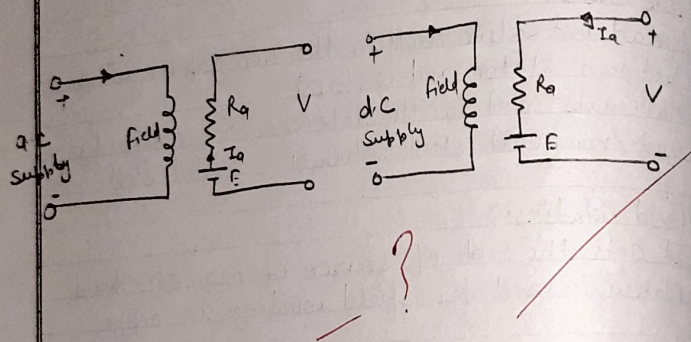 +
a c
supply
-
field
Ra
Ia
E
V
+
d.c
supply
-
field
Ia
Ra
E
+
V
-
?